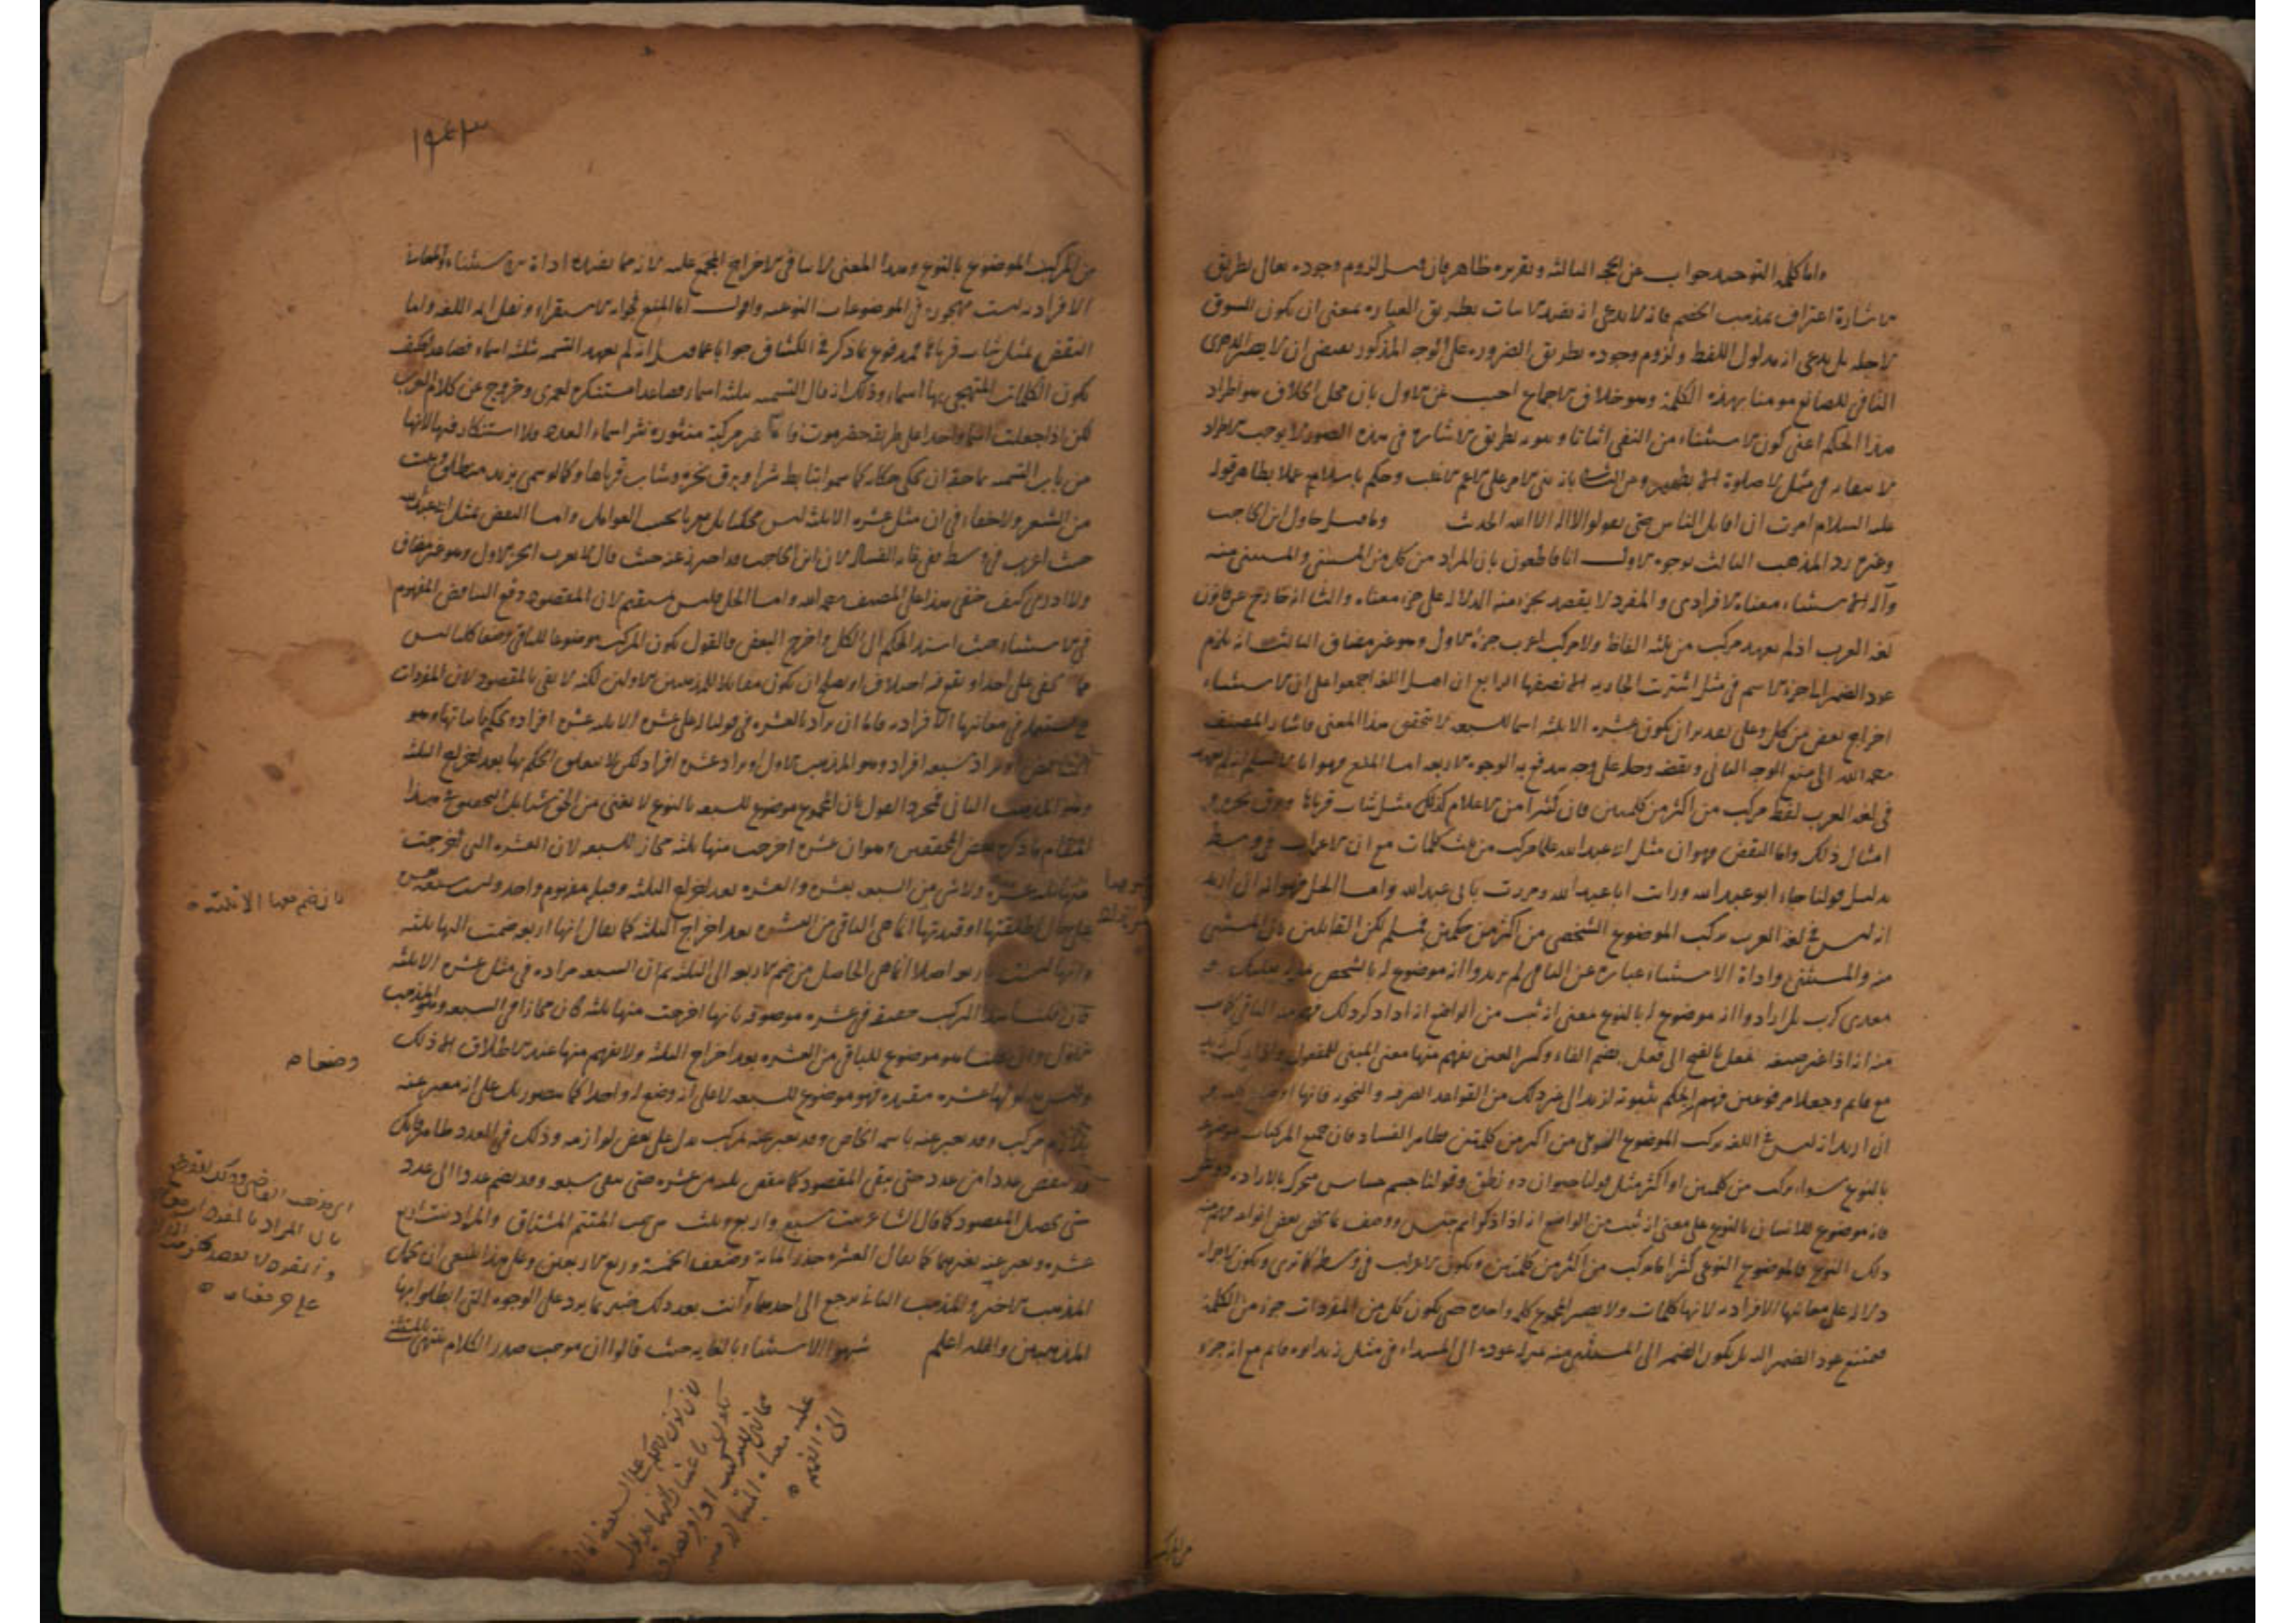 واما كلمة التوحيد جواب عن الحجة الثالثة وتقريره ظاهر فان قيل لزوم وجوده تعالى بطريق
الاشارة اعتراف بمذهب الخصم فانه لا يدعى انه يفيد الاثبات بطريق العبارة بمعنى ان يكون السوق
لاجله بل يدعى انه مدلول اللفظ ولزوم وجوده بطريق الضرورة على الوجه المذكور يقتضى ان لا يصير الدهرى
النافى للصانع مومنا بهذه الكلمة وهو خلاف الاجماع اجيب عن الاول بان محل الخلاف هو اطراد
هذا الحكم اعنى كون الاستثناء من النفى اثباتا وثبوته بطريق الاشارة فى هذه الصورة لا يوجب الاطراد
لانتفائه فى مثل لا صلوة الا بطهور وعن الثانى بانه بنى الامر على الاعم الاغلب وحكم باسلامه عملا بظاهر قوله
عليه السلام امرت ان اقاتل الناس حتى يقولوا لا اله الا الله الحديث وما قيل حاول ابن الحاجب
وغيره رد المذهب الثالث بوجوه الاول انا قاطعون بان المراد من كل من المستثنى والمستثنى منه
وآلة الاستثناء معناه الافرادى والمفرد لا يقصد بجزء منه الدلالة على جزء معناه والثانى انه خارج عن قانون
لغة العرب اذ لم يعهد مركب من ثلثة الفاظ ولا مركب اعرب جزؤه الاول وهو غير مضاف الثالث انه يلزم
عود الضمير الى جزء الاسم فى مثل اشتريت الجارية الا نصفها الرابع ان اهل اللغة اجمعوا على ان الاستثناء
اخراج بعض من كل وعلى تقدير ان يكون عشرة الا ثلثة اسما للسبعة لا يتحقق هذا المعنى فاشار المصنف
رحمه الله الى منع الوجه الثانى ونقضه وحله على وجه يندفع به الوجوه الاربعة اما المنع فهو انا لا نسلم انه لم يعهد
فى لغة العرب لفظ مركب من اكثر من كلمتين فان كثيرا من الاعلام كذلك مثل شاب قرناها وبرق نحره و
امثال ذلك واما النقض فهو ان مثل ابو عبد الله علما مركب من ثلث كلمات مع ان الاعراب فى وسطه
بدليل قولنا جاء ابو عبد الله ورايت ابا عبد الله ومررت بابى عبد الله واما الحل فهو انه ان اريد
انه ليس فى لغة العرب مركب الموضوع الشخصى من اكثر من كلمتين فمسلم لكن القايلين بان المستثنى
منه والمستثنى واداة الاستثناء عبارة عن الباقى لم يريدوا انه موضوع له بالشخص مثل بعلبك و
معدى كرب بل ارادوا انه موضوع له بالنوع بمعنى انه ثبت من الواضع انه اذا ذكر ذلك فهم منه الباقى كما ثبت
منه انه اذا غير صيغة فعل بالفتح الى فعل بضم الفاء وكسر العين يفهم منها معنى المبنى للمفعول واذا ركب زيد
مع قايم وجعلا مرفوعين فهم الحكم بثبوته لزيد الى غير ذلك من القواعد الصرفية والنحوية فانها اوضاع نوعية
ان اريد انه ليس فى اللغة مركب الموضوع النوعى من اكثر من كلمتين فظاهر الفساد فان جميع المركبات موضوعة
بالنوع سواء تركبت من كلمتين او اكثر مثل قولنا حيوان ذو نطق وقولنا جسم حساس متحرك بالارادة ذو نطق
فانه موضوع للانسان بالنوع على معنى انه ثبت من الواضع انه اذا ذكر اسم جنس ووصف بما يخص بعض انواعه فهم منه
ذلك النوع فالموضوع النوعى كثيرا ما يتركب من اكثر من كلمتين ويكون الاعراب فى وسطه كما ترى ويكون لاجزائه
دلالة على معانيها الافرادية لانها كلمات ولا يصير المجموع كلمة واحدة حتى يكون كل من المفردات جزءا من الكلمة
فيمتنع عود الضمير اليه بل يكون الضمير الى المستثنى منه بمنزلة عوده الى المبتداء فى مثل زيد ابوه قايم مع انه جزء
من المركب
١٩٤٣
من المركب الموضوع بالنوع وهذا المعنى لا ينافى الاخراج المجمع عليه لانه مما يفيده اداة الاستثناء فالمعانى
الافرادية ليست مهجورة فى الموضوعات النوعية واقول اما المنع فجوابه الاستقراء ونقل ايمة اللغة واما
النقض بمثل شاب قرناها فمدفوع بما ذكر فى الكشاف جوابا عما قيل انه لم يعهد التسمية بثلثة اسماء فصاعدا فكيف
يكون الكلمات المتهجى بها اسماء وذلك انه قال التسمية بثلثة اسماء فصاعدا مستنكرة لعمرى وخروج عن كلام العرب
لكن اذا جعلت اسما واحدا على طريقة حضرموت فاما غير مركبة منثورة نثر اسماء العدد فلا استنكار فيها لانها
من باب التسمية بما حقه ان يحكى حكاية كما سموا بتابط شرا وبرق نحره وشاب قرناها وكما لو سمى بزيد منطلق وببيت
من الشعر ولا خفاء فى ان مثل عشرة الا ثلثة ليس محكيا بل معربا بحسب العوامل واما النقض بمثل ابى عبد الله
حيث اعرب فى وسطه ففى غاية الفساد لان ابن الحاجب قد احترز عنه حيث قال لا يعرب الجزء الاول وهو غير مضاف
ولا ادرى كيف خفى هذا على المصنف رحمه الله واما الحل فليس بمستقيم لان المقصود دفع التناقض المفهوم
فى الاستثناء حيث اسند الحكم الى الكل واخرج البعض فالقول بكون المركب موضوعا للباقى وضعا كليا ليس
مما يخفى على احد او يقع فيه اختلاف او يصلح ان يكون مقابلا للمذهبين الاولين لكنه لا يفى بالمقصود لان المفردات
ح مستعملة فى معانيها الافرادية فاما ان يراد بالعشرة فى قولنا له على عشرة الا ثلثة عشرة افراد ويحكم باثباتها وهو
التناقض او يراد سبعة افراد وهو المذهب الاول او يراد عشرة افراد لكن لا يتعلق الحكم بها الا بعد اخراج الثلثة
وهو المذهب الثانى فمجرد القول بان المجموع موضوع للسبعة بالنوع لا يغنى من الحق شيئا بل التحقيق فى هذا
المقام ما ذكره بعض المحققين وهو ان عشرة اخرجت منها ثلثة مجاز للسبعة لان العشرة التى اخرجت
منها ثلثة عشرة ولا شى من السبعة بعشرة والعشرة بعد اخراج الثلثة وقبله مفهوم واحد وليست سبعة
على حال اطلقتها او قيدتها انما هى الباقى من العشرة بعد اخراج الثلثة كما يقال انها اربعة ضمت اليها ثلثة
وانها ليست باربعة اصلا انما هى الحاصل من ضم الاربعة الى الثلثة ثم ان السبعة مرادة فى مثل عشرة الا ثلثة
فان قلنا هذا المركب حقيقة فى عشرة موصوفة بانها اخرجت منها ثلثة كان مجازا فى السبعة وهو المذهب
الاول وان قلنا هو موضوع للباقى من العشرة بعد اخراج الثلثة ولا يفهم منها عند الاطلاق الا ذلك
وليس مدلولها عشرة مقيدة فهو موضوع للسبعة لا على انه وضع له واحدا كما يتصور بل على انه معبر عنه
بلازم مركب وقد يعبر عنه باسمه الخاص وقد يعبر عنه بمركب يدل على بعض لوازمه وذلك فى العدد ظاهر فانك
قد تنقص عددا من عدد حتى يبقى المقصود كما تنقص ثلثة من عشرة حتى يبقى سبعة وقد تضم عددا الى عدد
حتى يحصل المقصود كما قال الشاعر بنت سبع واربع وثلث هى حتف المتيم المشتاق والمراد بنت اربع
عشرة ويعبر عنه بغيرهما كما يقال العشرة جذر الماية وضعف الخمسة وربع الاربعين وعلى هذا ينبغى ان يحمل
المذهب الاخير والمذهب الثانى يرجع الى احدهما وانت بعد ذلك خبير بما يرد على الوجوه التى ابطلوا بها
المذهبين والله اعلم شبهوا الاستثناء بالغاية حيث قالوا ان موجب صدر الكلام ينتهى بالمستثنى
وضعا